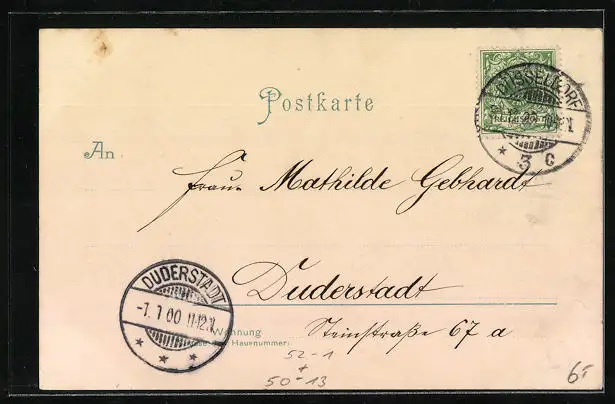 Postkarte
DÜSSELDORF
REICHSPOST
* 3 c
An
Frau Mathilde Gebhardt
Duderstadt
DUDERSTADT
-1. 1 00 11-12.V.
* * *
Wohnung
Hausnummer)
Steinstraße 67 a
52-1
+
50-13
6,-